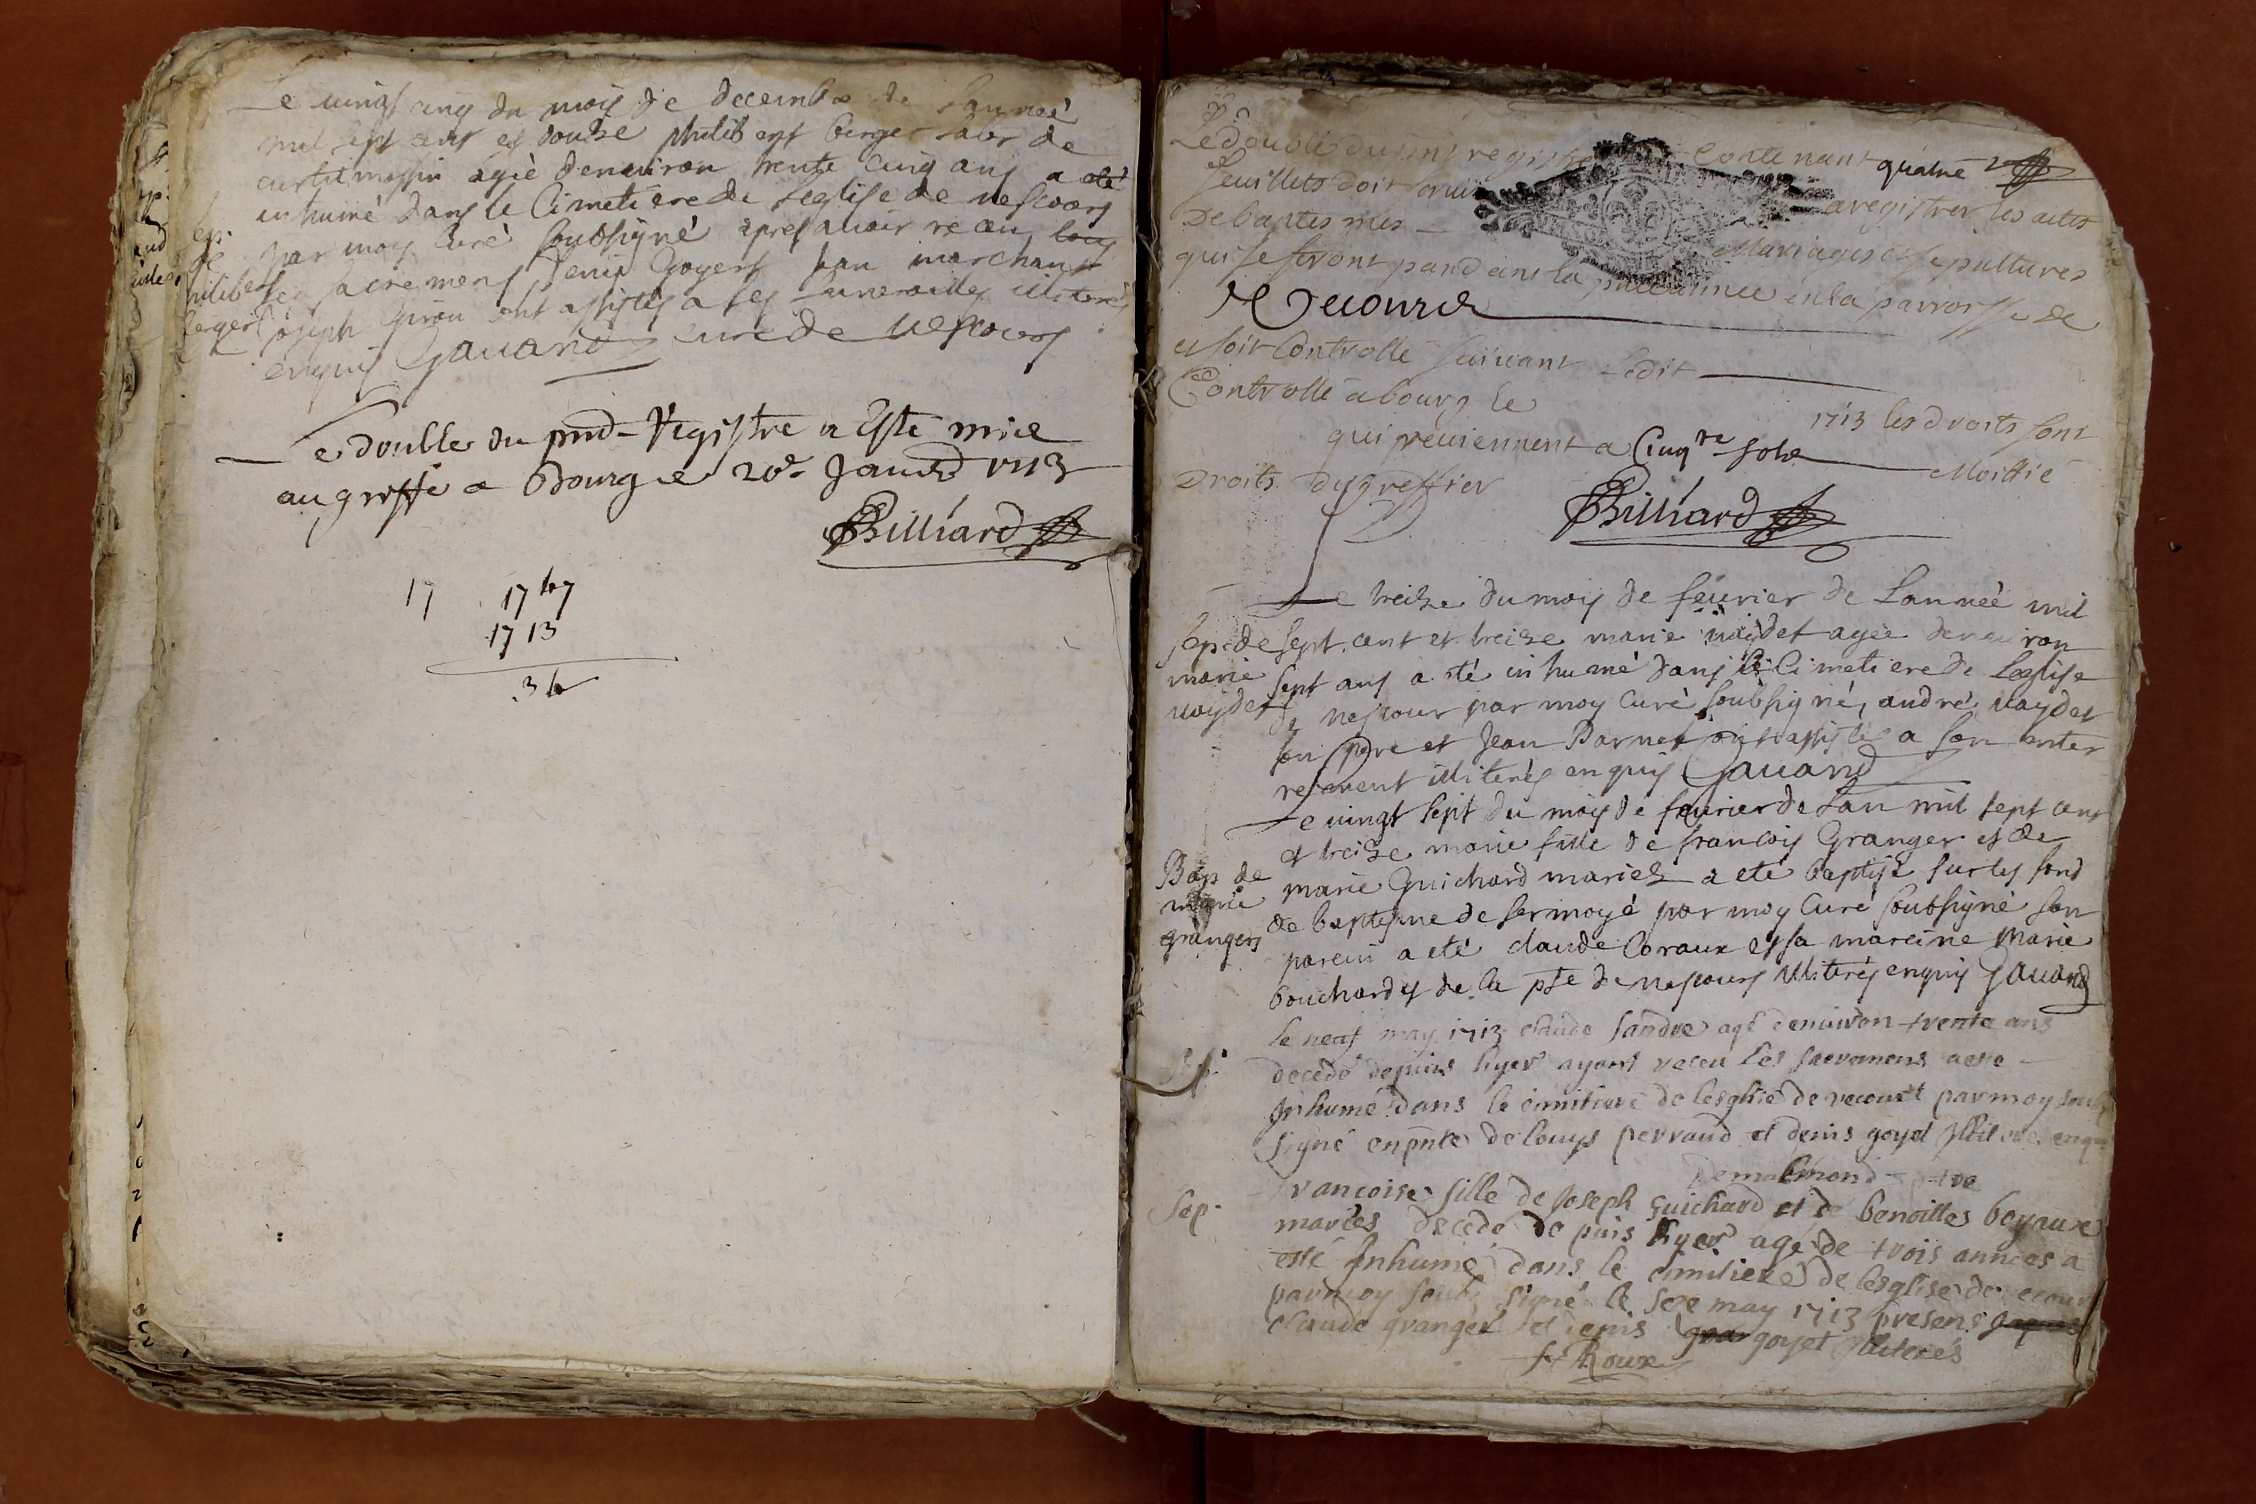 Le vingt cinq du mois de decembre de Lanneé
mil sept cent et douze philibert berger labr de
curtil massin agié denuiron trente cinq ans a eté
inhumé dans le Cimetiere de leglise de vescours
par moy Curé soubsigné apres auoir receu tous
les sacremens denis goyet
joseph ont assistes a ses funerailles illiterés
enquis Gauand curé de vescours
Sep.
de
philibert
berger
Le double du pnd Registre a Esté mise
au greffe a Bourg le 20e Janud 1713
Billiard
17 1747
1713
34
Le double du pnt registre Contenant quatre
feuillets doit seruir a registrer les actes
De baptesmes Mariages et sepultures
qui se feront pandant la presente année en la parroisse de
Vecours
et soit Controllé suiuant Ledit
Controllé a bourg le 1713 les droits sont
qui reuiennent a Cinqte sols Moittié
Droits du greffier Billiard
Le treize du mois de feurier de Lanneé mil
sept cent et treize marie uaydet ageé denuiron
sept ans a eté inhumé dans le Cimetiere de Leglise
de vescour par moy Curé soubsigné, andré uaydet
son pere et Jean Barnet ont assistés a son enter
rement illiterés enquis Gauand
Sep. de
marie
uaydet
Le uingt sept du mois de feurier de Lan mil sept cent
et treize marie fille de francois Granger et de
marie Guichard mariés a eté baptisé sur les fond
de baptesme de sermoyé par moy Curé soubsigné son
parein a eté claude Coraux et sa mareine Marie
bouchardy de la psse de vescours illiterés enquis Gauand
Bap. de
marie
granger
le neuf may 1713 claude sandre agé denuiron trente ans
decedé depuis hyer ayant receu les sacremens a eté
Inhumé dans le cimitiere de lesglise de vecourt par moy soub
signé en pnce de louys perraud et denis goyet Illiteres enq
Sep.
francoise fille de Joseph guichard et de benoitte boyaux
mariés decedé de puis hyer agé de trois années a
esté Inhumé dans le cimitiere de lesglise de vecour
par moy soub signé le se may 1713 presens
claude granger et denis goyet Illiterés
Roux
Sep.